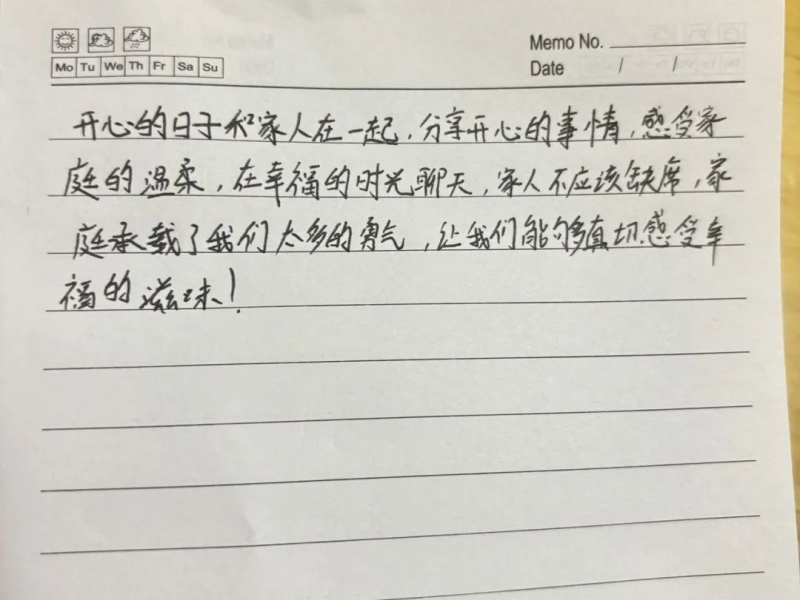 Memo No.
Mo Tu We Th Fr Sa Su
Date / /
开心的日子和家人在一起，分享开心的事情，感受家
庭的温柔，在幸福的时光聊天，家人不应该缺席，家
庭承载了我们太多的勇气，让我们能够真切感受幸
福的滋味！